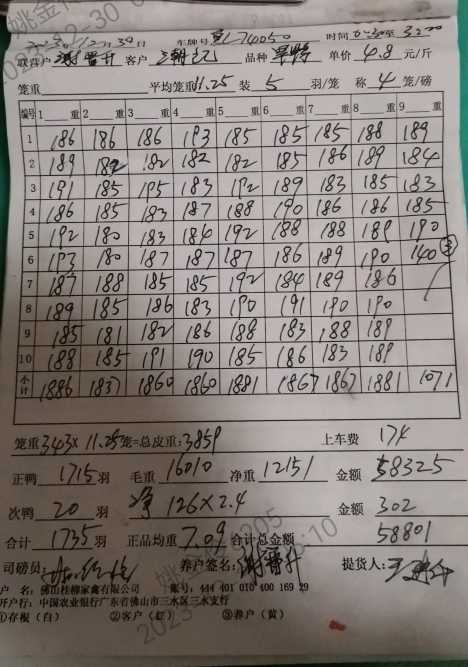 车牌号 时间
联营户 谢晋升 客户 品种 单价 4.8 元/斤
笼重 平均笼重 11.25 装 5 羽/笼 称 4 笼/磅
编号 1 重 2 重 3 重 4 重 5 重 6 重 7 重 8 重 9 重
1 186 186 186 193 185 185 185 188 189
2 189 182 182 182 182 185 186 189 184
3 191 185 195 183 192 189 183 185 183
4 186 185 183 187 188 190 186 186 185
5 192 180 183 184 192 188 188 189 190
6 193 180 187 187 187 186 189 190 140
7 187 188 185 185 192 184 189 186
8 189 185 186 183 190 191 190 190
9 185 181 182 186 188 183 188 189
10 188 185 191 190 185 186 183 189
小计 1886 1837 1860 1860 1881 1867 1867 1881 1071
笼重 343× 11.25 笼=总皮重: 3859 上车费 174
正鸭 1715 羽 毛重 16010 净重 12151 金额 58325
次鸭 20 羽 净 126×2.4 金额 302
合计 1735 羽 正品均重 7.09 合计总金额 58801
司磅员: 养户签名: 谢晋升 提货人:
户 名: 佛山桂柳家禽有限公司 账号: 444 401 010 400 169 29
开户行: 中国农业银行广东省佛山市三水区三水支行
①存根(白) ②客户(红) ③养户(黄)